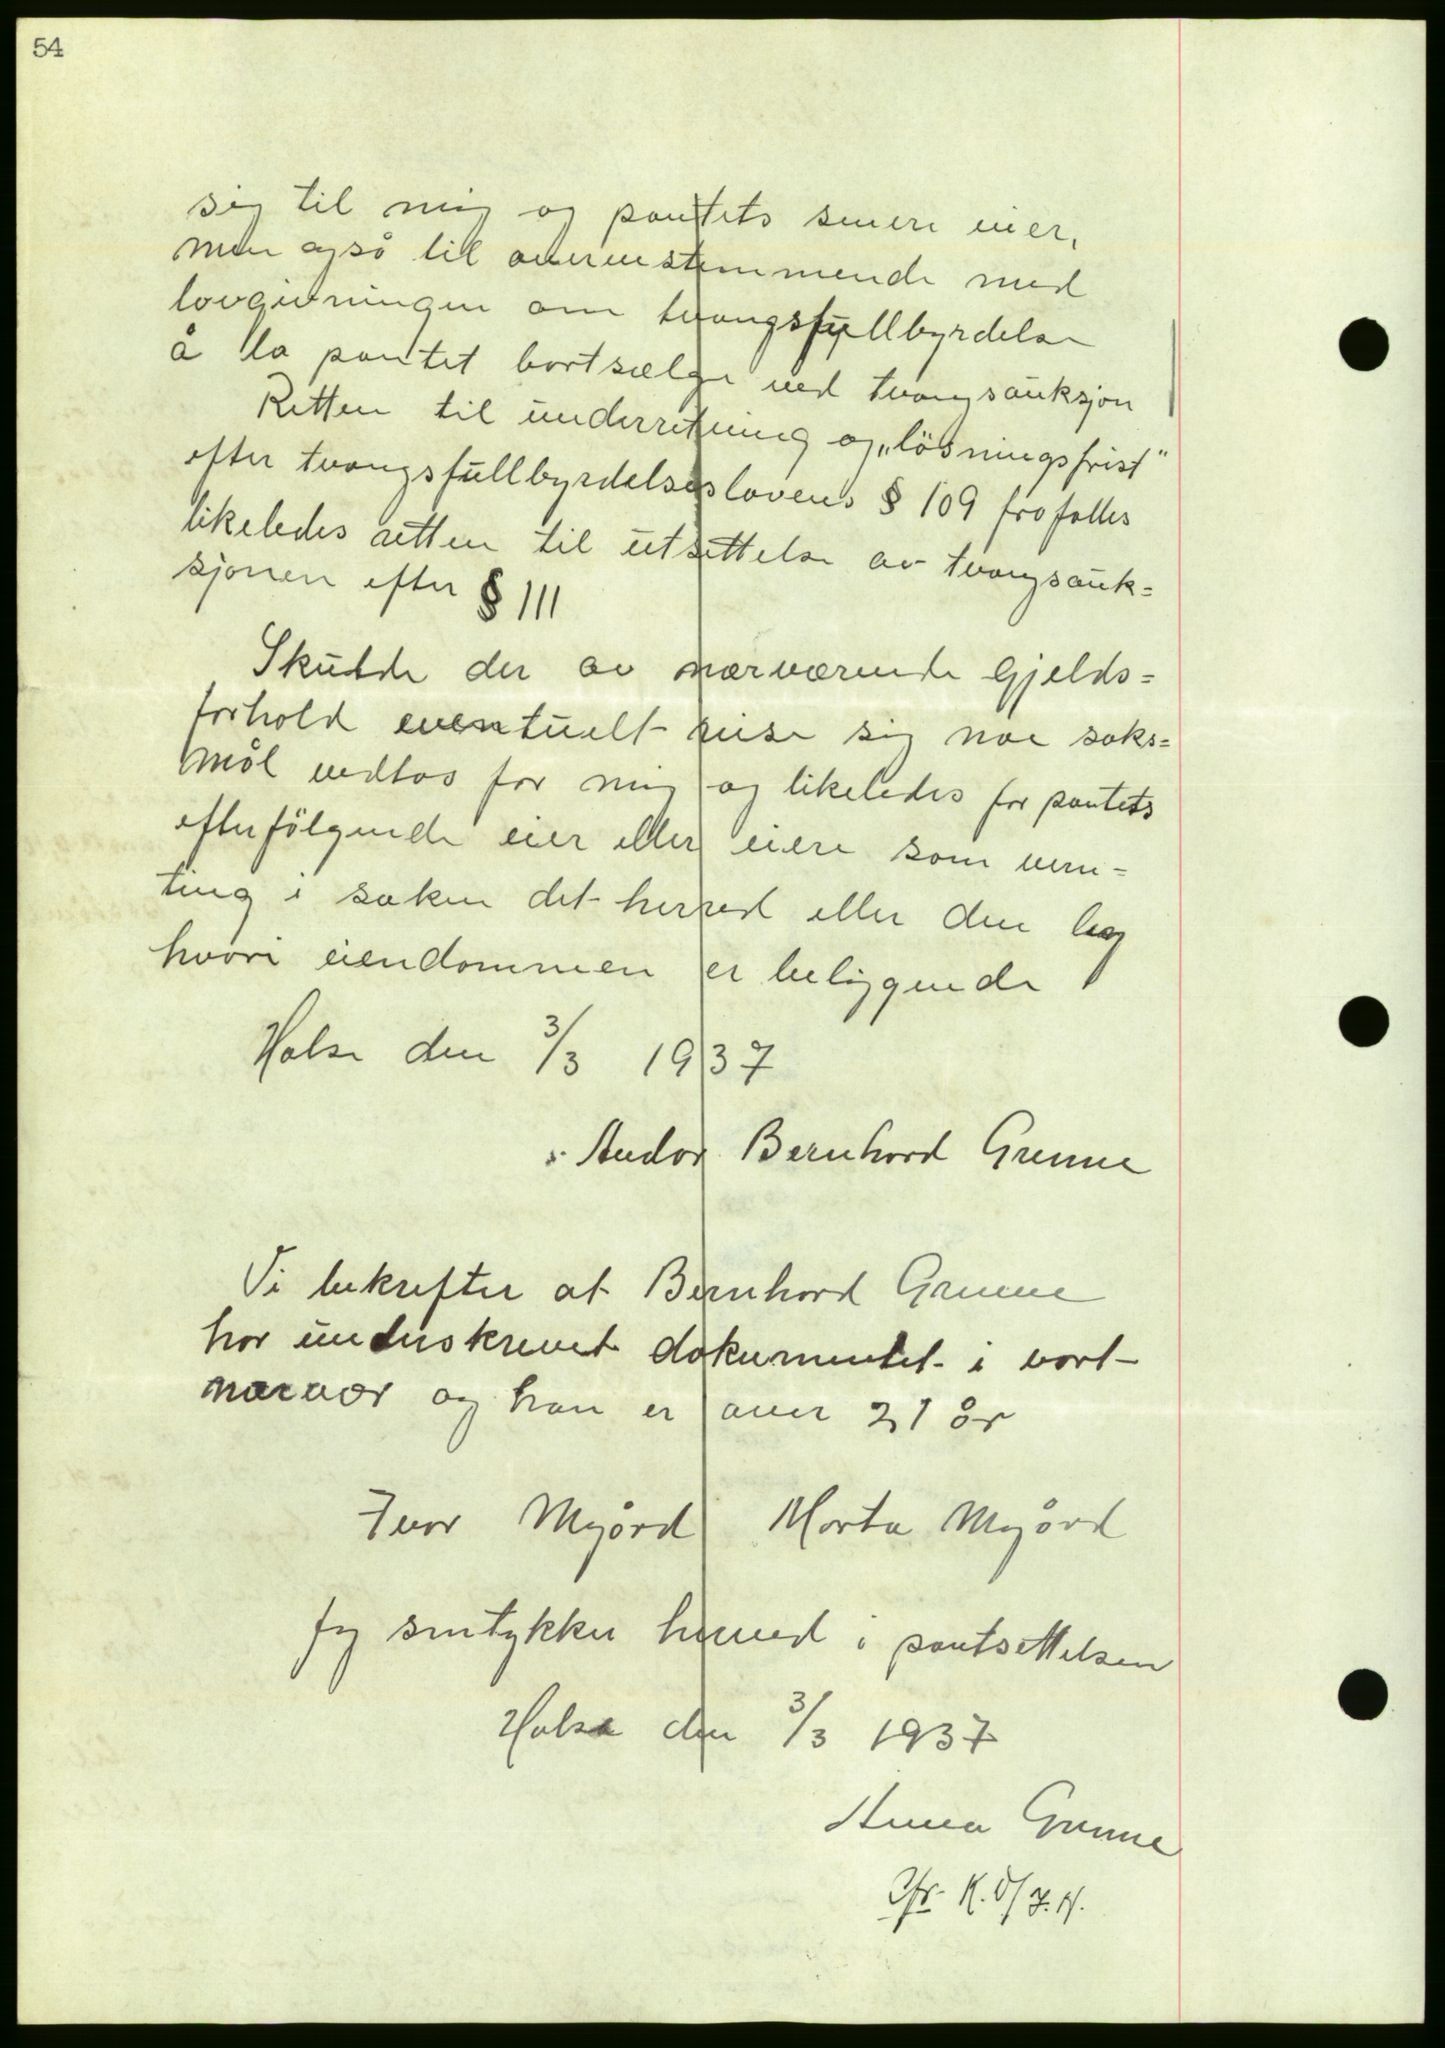 54
sig til mig og pantets senere eier,
men også til overenstemmende med
lovgivningen om tvangsfullbyrdelse
å la pantet bortsælge ved tvangsauksjon
Retten til underretning og „lösningsfrist"
efter tvangsfullbyrdelseslovens § 109 frafalles
likeledes retten til utsettelse av tvangsauk=
sjonen efter § 111
Skulde der av nærværende gjelds=
forhold eventuelt reise sig noe søks=
mål vedtas for mig og likeledes for pantets
efterfölgende eier eller eiere som vern=
ting i saken det herred eller den by
hvori eiendommen er beliggende
Halsa den 3/3 1937
Andor Bernhard Grenne
Vi bekrefter at Bernhard Grenne
har underskrevet dokumentet i vort
nærvær og han er over 21 år
Ivar Myård Marta Myård
Jeg smtykker herved i pantsettelsen
Halsa den 3/3 1937
Anna Grenne
Jfr. K.